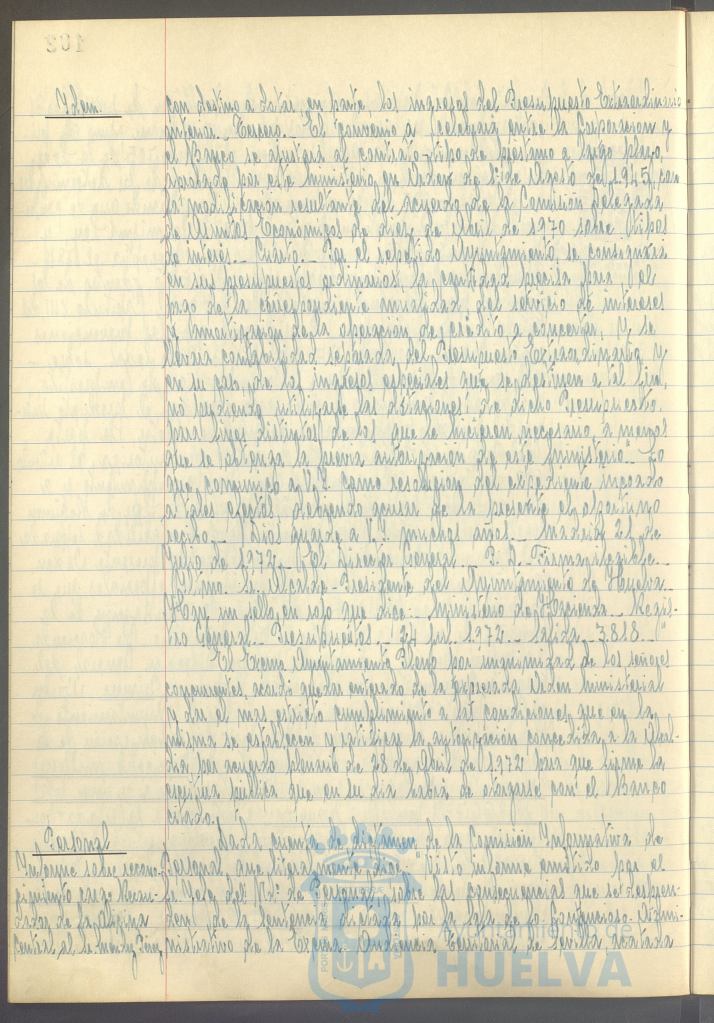 Idem.
con destino a dotar, en parte los ingresos del Presupuesto Extraordinario
anterior.- Tercero.- El convenio a celebrar entre la Corporación y
el Banco se ajustará al contrato-tipo de préstamo a largo plazo,
aprobado por este Ministerio, en Orden de 1º de Agosto de 1945, con
la modificación resultante del acuerdo de la Comisión Delegada
de Asuntos Económicos de diez de Abril de 1970 sobre tipos
de interés.- Cuarto.- Por el repetido Ayuntamiento, se consignará
en sus presupuestos ordinarios, la cantidad precisa para el
pago de la correspondiente anualidad del servicio de intereses
y amortización de la operación de crédito a concertar, y se
llevará contabilidad separada, del Presupuesto Extraordinario y
en su caso, de los ingresos especiales que se destinen a tal fin,
no pudiendo utilizarse las dotaciones de dicho Presupuesto,
para fines distintos de los que le hicieron necesario, a menos
que se obtenga la previa autorización de este Ministerio.- Lo
que comunico a V.I. como resolución del expediente incoado
a tales efectos debiendo acusar de la presente el oportuno
recibo.- Dios guarde a V.I. muchos años.- Madrid 21 de
Julio de 1972.- El Director General.- P.D.- Firma ilegible.-
Iltmo. Sr. Alcalde-Presidente del Ayuntamiento de Huelva.-
Hay un sello en rojo que dice:- Ministerio de Hacienda.- Regis-
tro General.- Presupuestos.- 24 Jul. 1972.- Salida 3.818.-"
El Excmo. Ayuntamiento Pleno por unanimidad de los señores
concurrentes, acordó quedar enterado de la expresada Orden Ministerial
y dar el mas estricto cumplimiento a las condiciones que en la
misma se establecen y ratificar la autorización concedida a la Alcal-
día por acuerdo plenario de 28 de Abril de 1972 para que firme la
escritura pública que en su día habrá de otorgarse con el Banco
citado.
Personal
Informe sobre recono-
cimiento cargo Recau-
dador de la Oficina
Central al Sr. Méndez Pérez
Dada cuenta de dictamen de la Comisión Informativa de
Personal que literalmente dice: "Visto informe emitido por el
Sr. Jefe del Ngdo. de Personal, sobre las consecuencias que se despren-
den de la Sentencia dictada por la Sala de lo Contencioso-Admi-
nistrativo de la Excma. Audiencia Territorial de Sevilla acatada
Ayuntamiento de
HUELVA